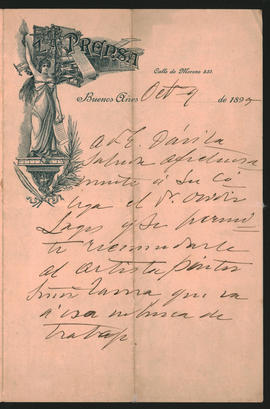 LA PRENSA
Calle de Moreno 851.
Buenos Aires Oct 9 de 189
A. E. Dávila
saluda afectuosa
mente á su co
lega el Dr. Ovidio
Lagos y se permi
te recomendarle
al artista pintor
Señor que va
á esa en busca de
trabajo.